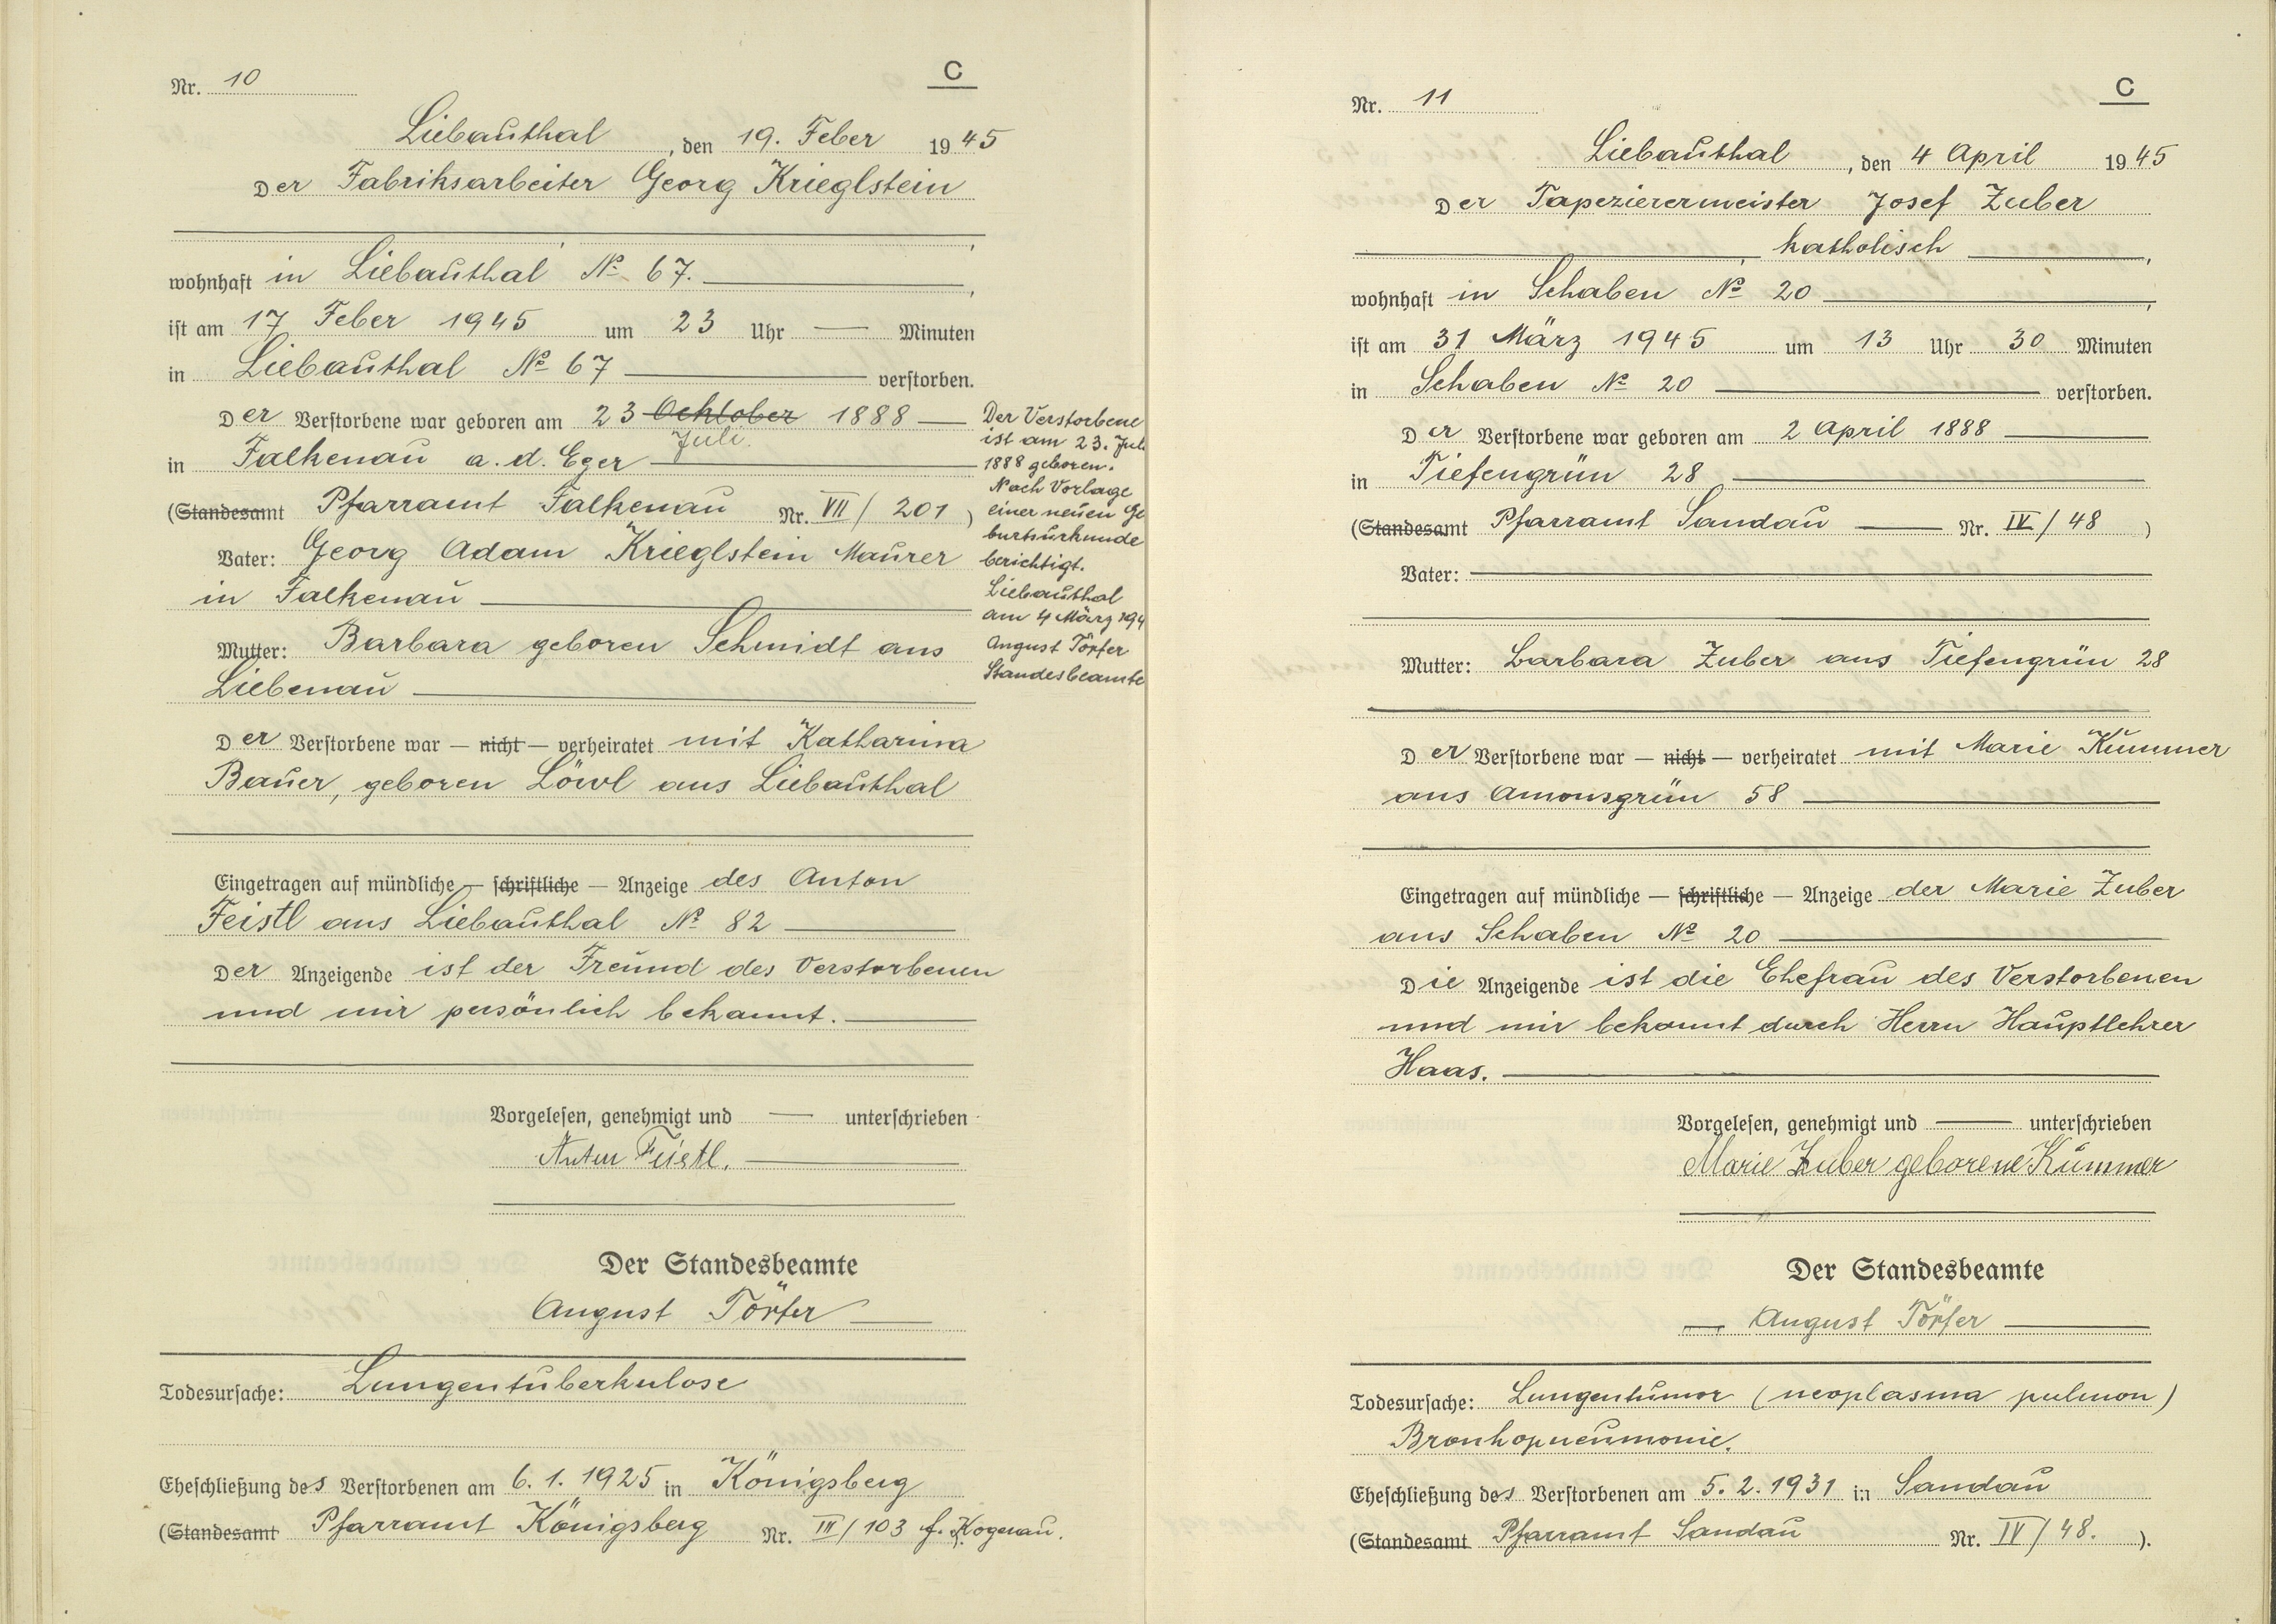 Nr. 10
C
Liebauthal, den 19. Feber 1945
Der Fabriksarbeiter Georg Krieglstein
wohnhaft in Liebauthal No 67.
ist am 17 Feber 1945 um 23 Uhr — Minuten
in Liebauthal No 67 verstorben.
Der Verstorbene war geboren am 23 Ocktober 1888
Juli
in Falkenau a. d. Eger
(Standesamt Pfarramt Falkenau Nr. VII / 201 )
Vater: Georg Adam Krieglstein Maurer
in Falkenau
Mutter: Barbara geboren Schmidt aus
Liebenau
Der Verstorbene war — nicht — verheiratet mit Katharina
Bauer, geboren Löwl aus Liebauthal
Eingetragen auf mündliche — schriftliche — Anzeige des Anton
Feistl aus Liebauthal No 82
Der Anzeigende ist der Freund des Verstorbenen
und mir persönlich bekannt.
Vorgelesen, genehmigt und — unterschrieben
Anton Feistl.
Der Standesbeamte
August Törfer
Todesursache: Lungentuberkulose
Eheschließung des Verstorbenen am 6. 1. 1925 in Königsberg
(Standesamt Pfarramt Königsberg Nr. III / 103 f. Kogerau.
Der Verstorbene
ist am 23. Juli
1888 geboren.
Nach Vorlage
einer neuen Ge
burtsurkunde
berichtigt.
Liebauthal
am 4 März 194
August Törfer
Standesbeamte
Nr. 11
C
Liebauthal, den 4 April 1945
Der Tapezierermeister Josef Zuber
katholisch
wohnhaft in Schaben No 20
ist am 31 März 1945 um 13 Uhr 30 Minuten
in Schaben No 20 verstorben.
Der Verstorbene war geboren am 2 April 1888
in Tiefengrün 28
(Standesamt Pfarramt Sandau Nr. IV / 48 )
Vater:
Mutter: Barbara Zuber aus Tiefengrün 28
Der Verstorbene war — nicht — verheiratet mit Marie Kummer
aus Amonsgrün 58
Eingetragen auf mündliche — schriftliche — Anzeige der Marie Zuber
aus Schaben No 20
Die Anzeigende ist die Ehefrau des Verstorbenen
und mir bekannt durch Herrn Hauptlehrer
Haas.
Vorgelesen, genehmigt und — unterschrieben
Marie Zuber geborene Kummer
Der Standesbeamte
August Törfer
Todesursache: Lungentumor (neoplasma pulmon)
Bronhopneumonie.
Eheschließung des Verstorbenen am 5. 2. 1931 in Sandau
(Standesamt Pfarramt Sandau Nr. IV / 48. ).